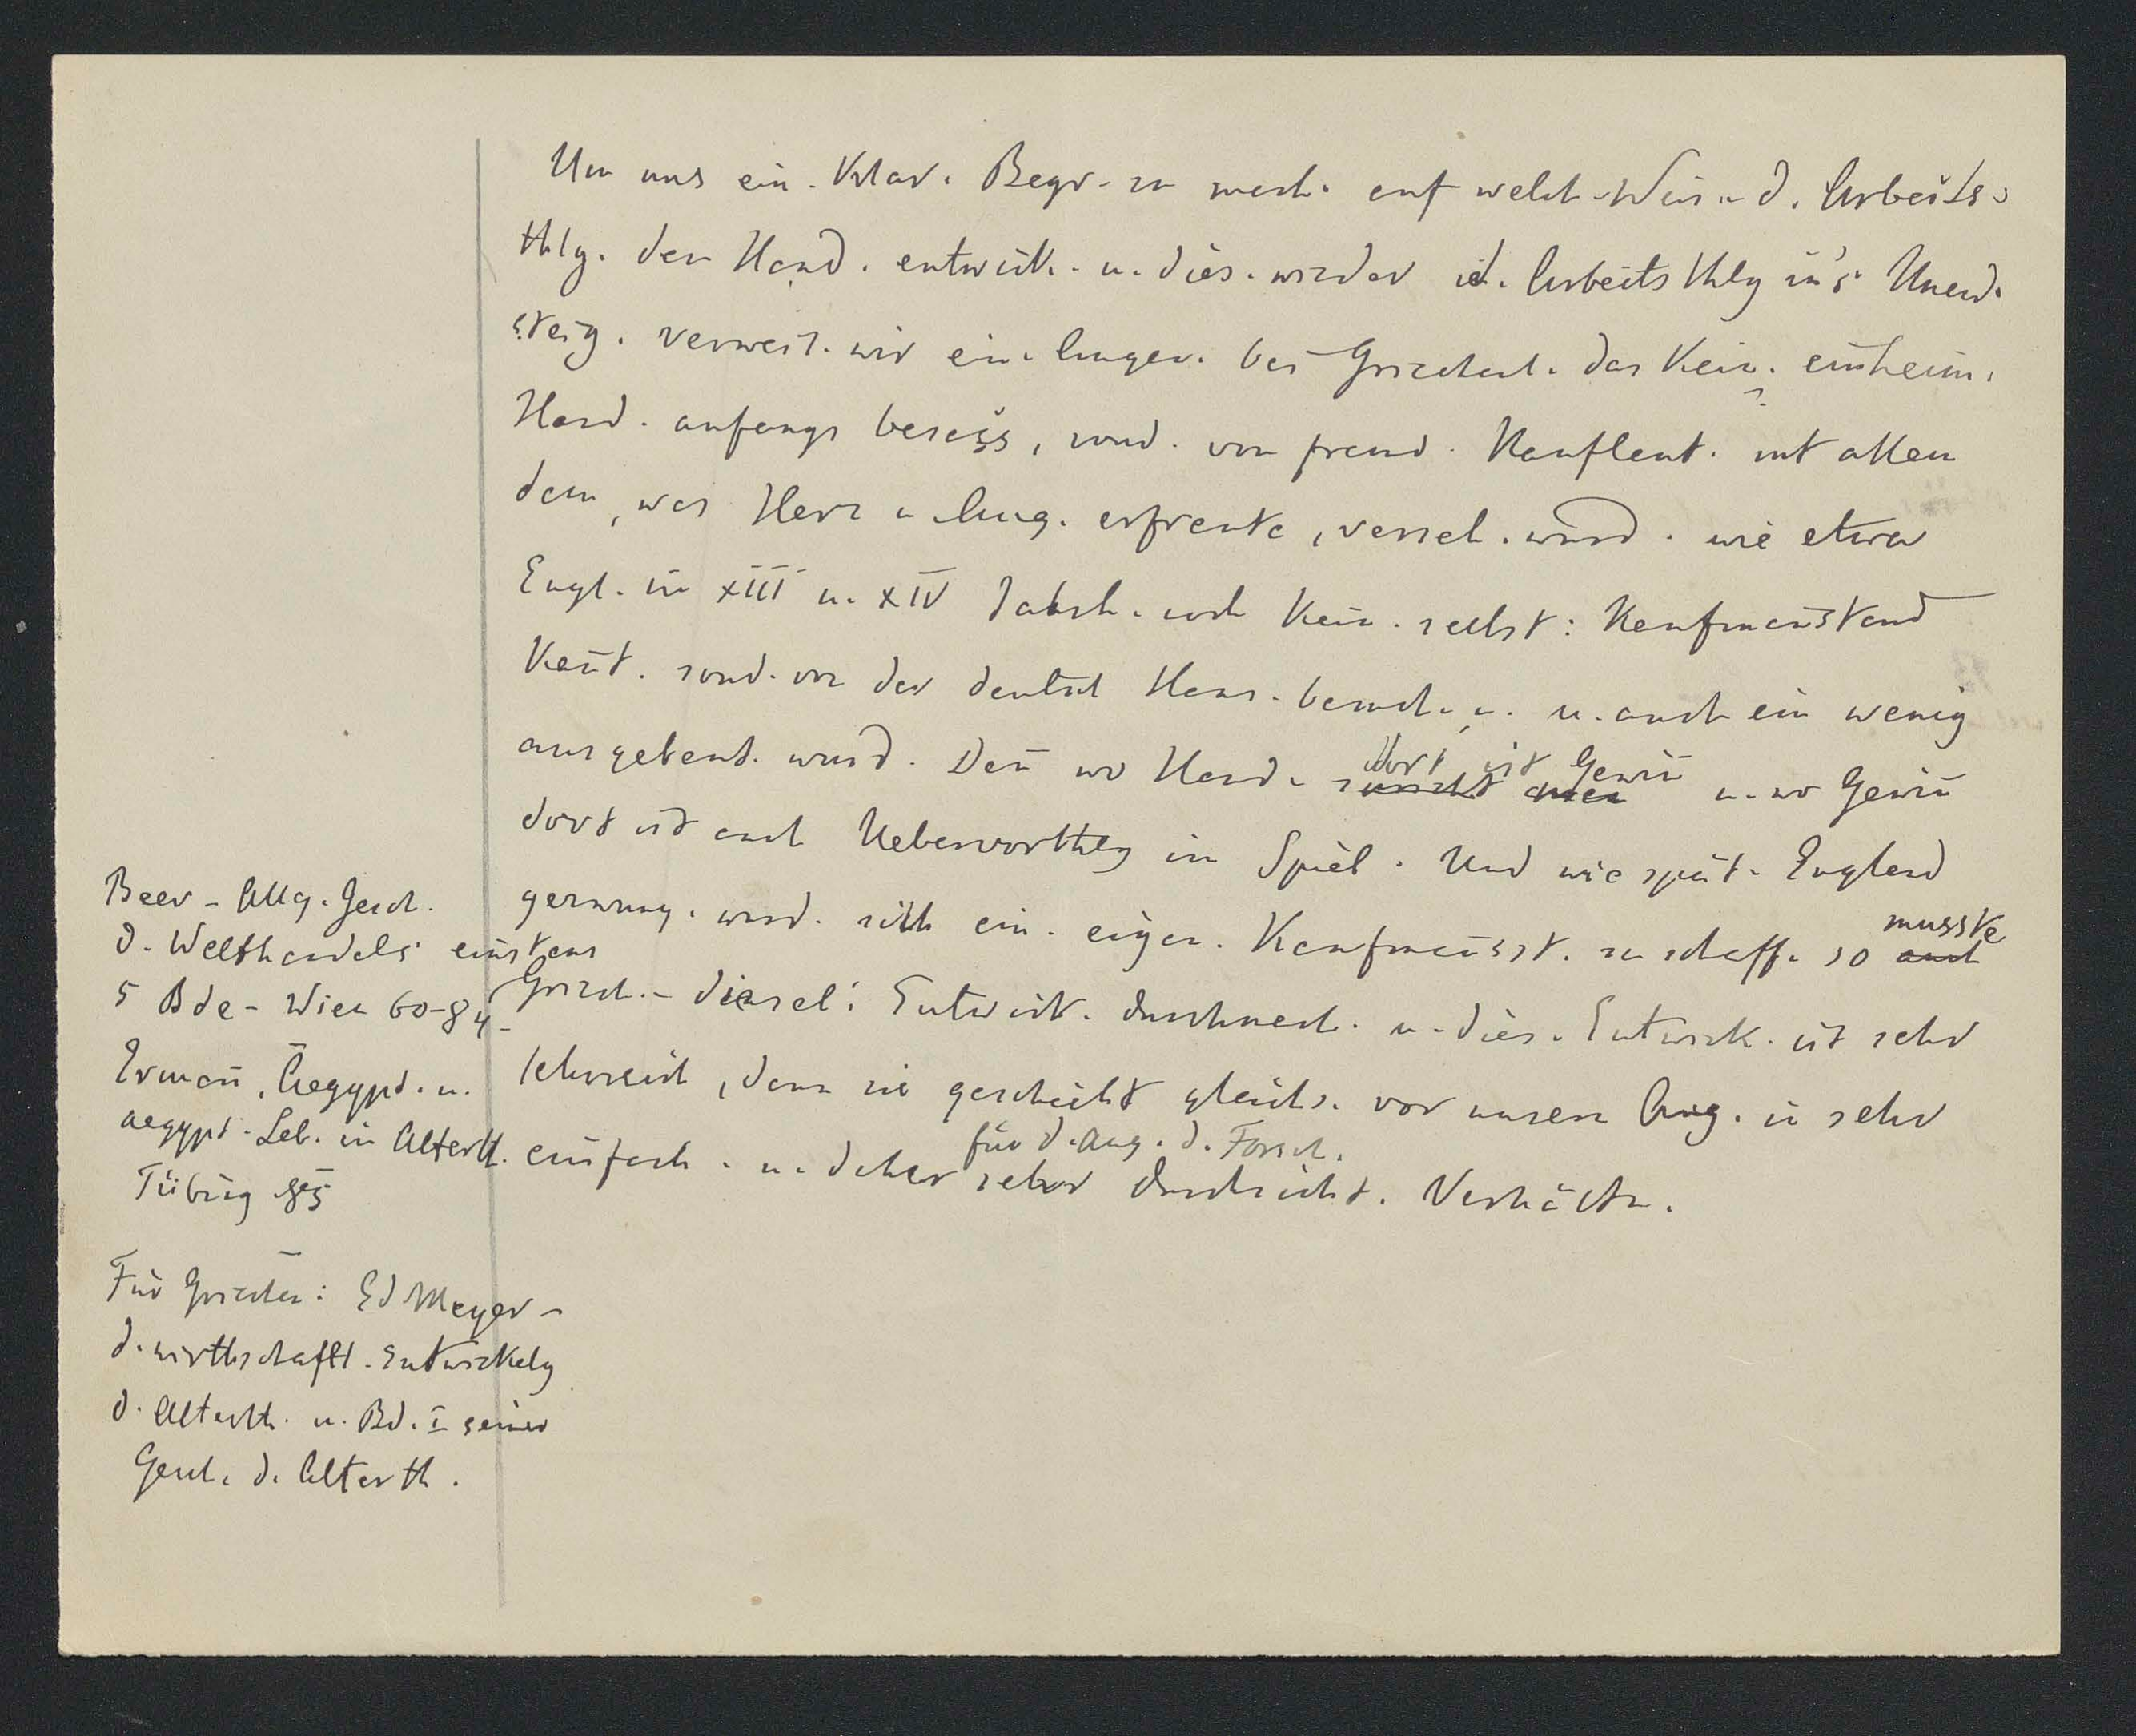 Um uns ein. klar. Begr. zu mach. auf welch. Weis. d. Arbeits-
thlg. den Hand. entwick. u. dies. wieder d. Arbeitsthlg in's Unend.
steig. verweil. wir ein. Augen. bei Griechenl. das kein. einheim.
Hand. anfangs besass, sond. von fremd. Kaufleut. mit allem
dem, was Herz u. Aug. erfreute, verseh. wurd. wie etwa
Engl. im XIII u. XIV Jahrh. noch kein. selbst: Kaufmanstand
kent. sond. von der deutsch Hans. besuch. u. auch ein wenig
ausgebeut. wurd. Den wo Hand. dort ist Gewin u. wo Gewin
dort ist auch Uebervorthlg im Spiel. Und wie spät. England
gezwung. ward. sich ein. eigen. Kaufmansst. zu schaff. so musste auch
Griech. - diesel: Entwick. durchmach. u. dies. Entwick. ist sehr
lehrreich, denn sie geschieht gleichs. vor unsern Aug. in sehr
einfach. u. daher für d. Aug. d. Forsch. sehr durchsicht. Verhältn.
Beer - Allg. Gesch.
d. Welthandels
5 Bde - Wien 60-84 -
Erman, Aegypt. u.
aegypt. Leb. im Alterth.
Tübing 85
Für Griechen: Ed Meyer -
d. wirthschaftl. Entwickelg
d. Alterth. u. Bd. I seiner
Gesch. d. Alterth.